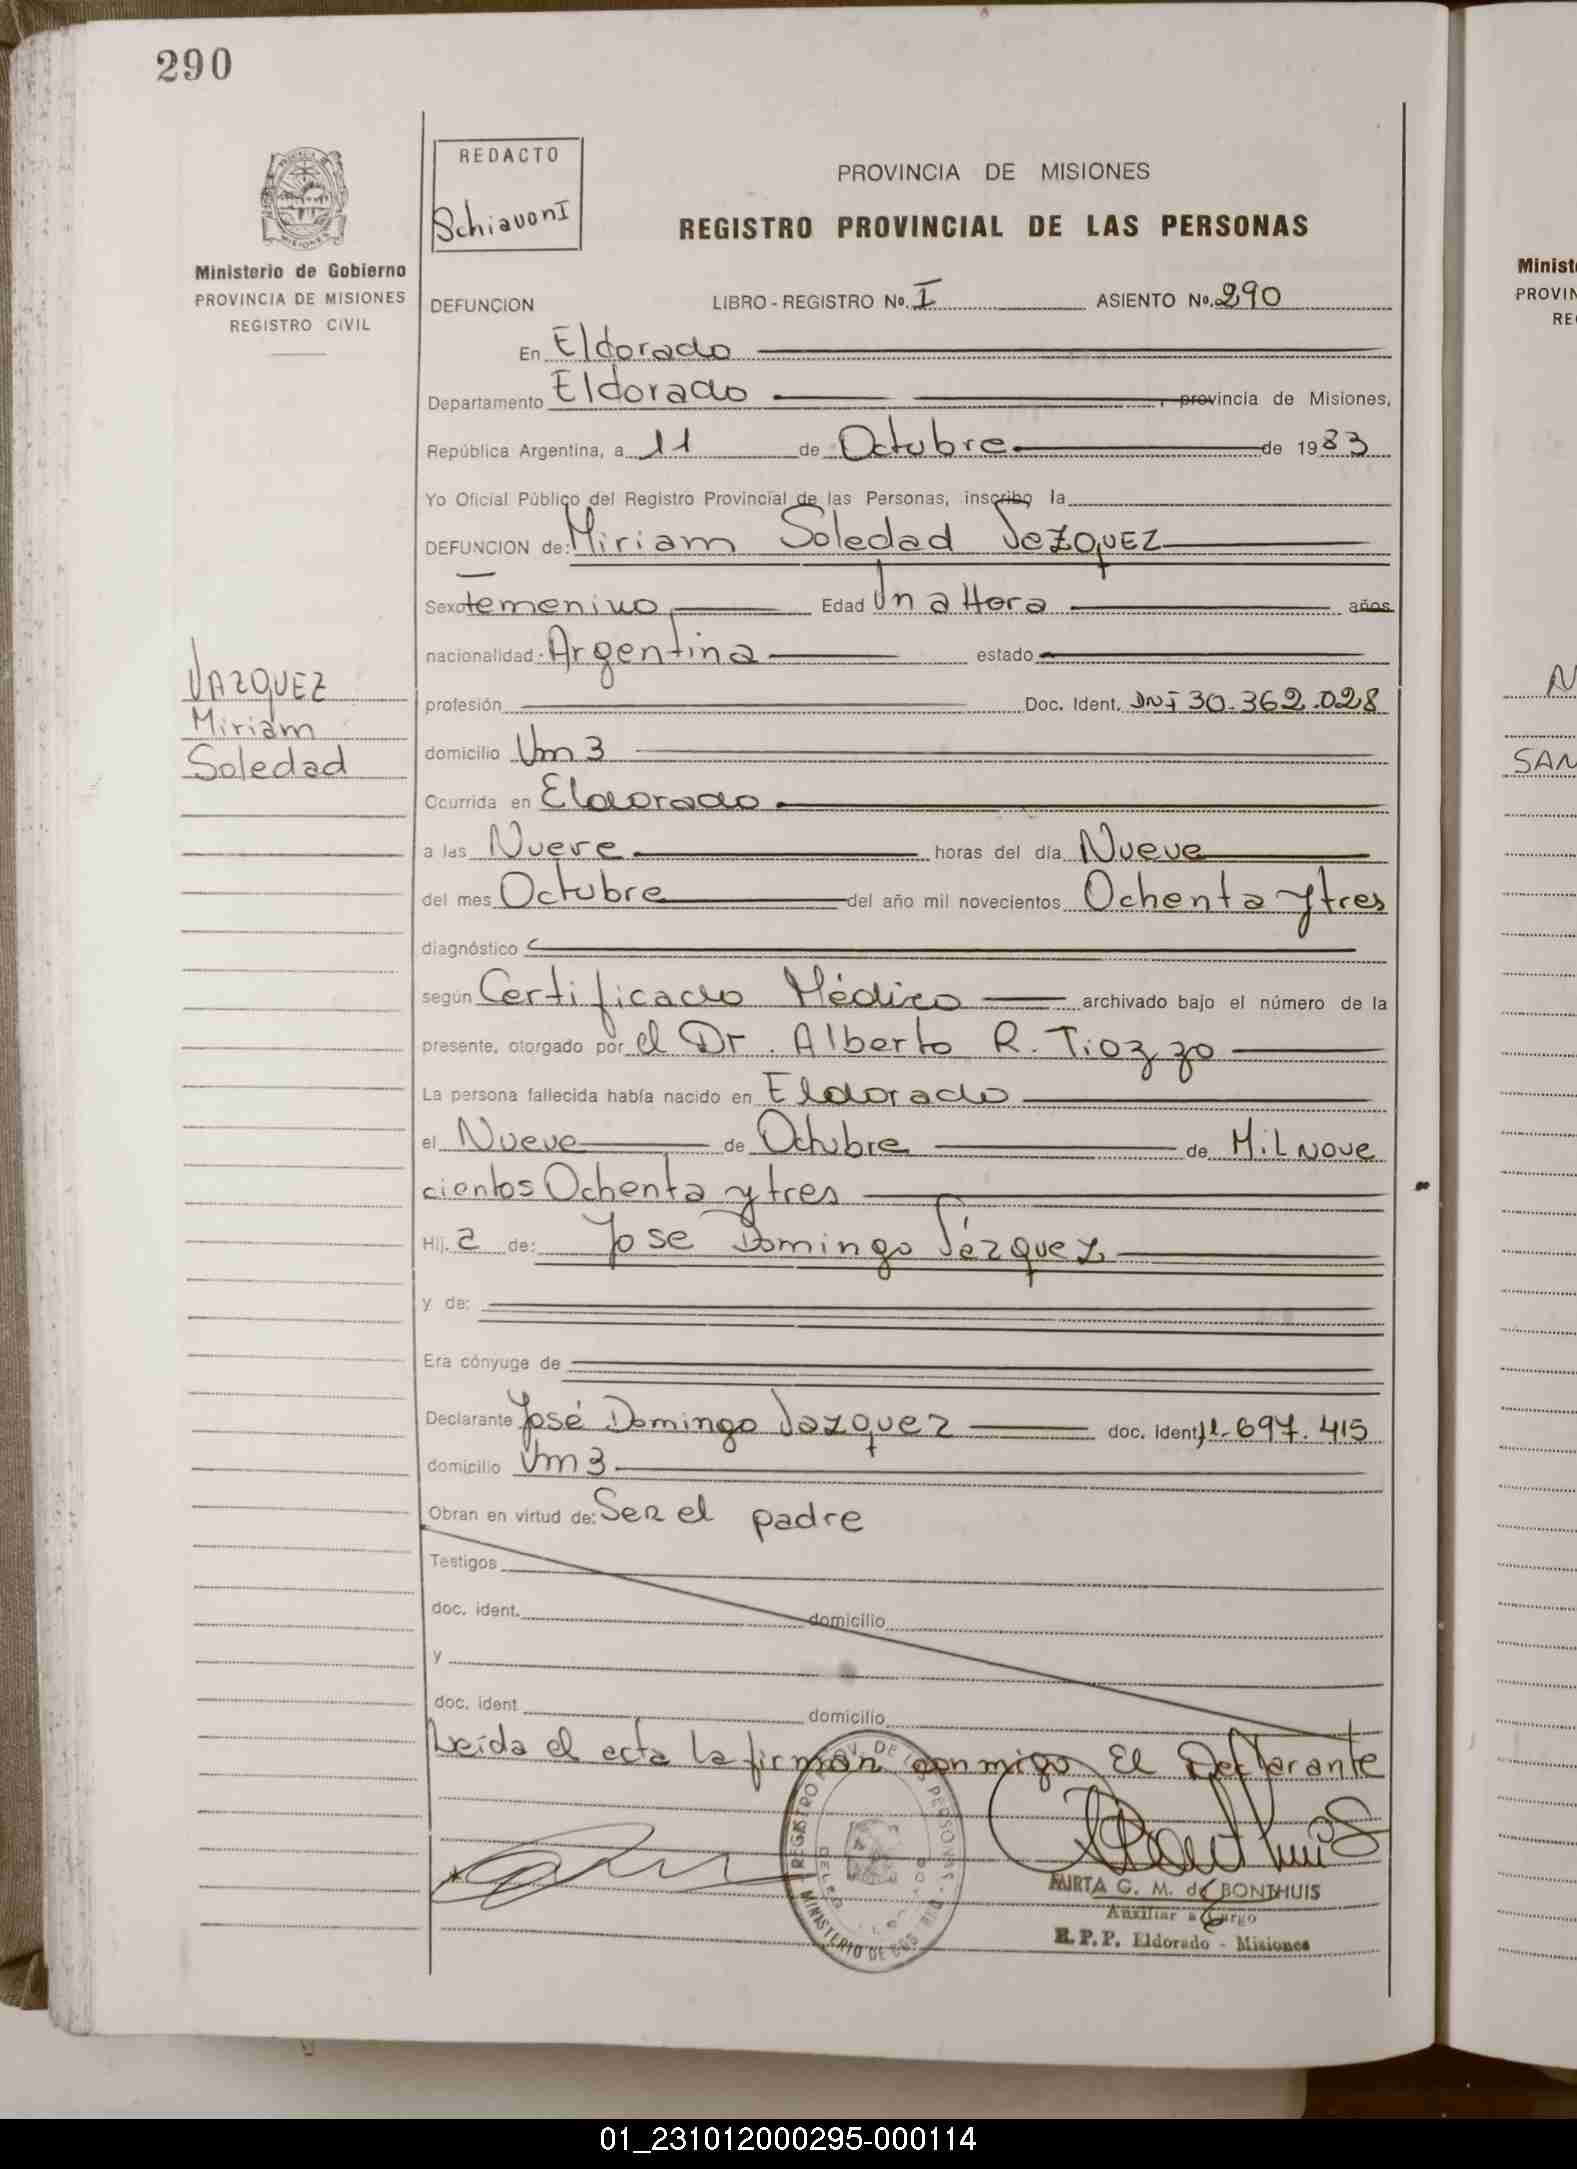 290
REDACTO
Schiavoni
PROVINCIA DE MISIONES
REGISTRO PROVINCIAL DE LAS PERSONAS
Ministerio de Gobierno
PROVINCIA DE MISIONES
REGISTRO CIVIL
DEFUNCION LIBRO - REGISTRO No. I ASIENTO No. 290
En Eldorado
Departamento Eldorado, provincia de Misiones,
República Argentina, a 11 de Octubre de 1983
Yo Oficial Público del Registro Provincial de las Personas, inscribo la
DEFUNCION de: Miriam Soledad VazQUEZ
Sexo Femenino Edad Una Hora años
nacionalidad Argentina estado
VAZQUEZ
Miriam
Soledad
profesión Doc. Ident. DNI 30.362.028
domicilio Km 3
Ocurrida en Eldorado
a las Nueve horas del día Nueve
del mes Octubre del año mil novecientos Ochenta y tres
diagnóstico
según Certificado Médico archivado bajo el número de la
presente, otorgado por el Dr. Alberto R. Tiozzo
La persona fallecida había nacido en Eldorado
el Nueve de Octubre de Mil Nove
cientos Ochenta y tres
Hij a de: Jose Domingo Vázquez
y de:
Era cónyuge de
Declarante José Domingo Vazquez doc. Ident. 12.697.415
domicilio Km 3
Obran en virtud de: Ser el padre
Testigos
doc. ident. domicilio
y
doc. ident. domicilio
Leída el acta la firman conmigo El Declarante
MIRTA G. M. de BONTHUIS
Auxiliar a Cargo
R.P.P. Eldorado - Misiones
Minist
PROVIN
RE
N
SAN
01_231012000295-000114